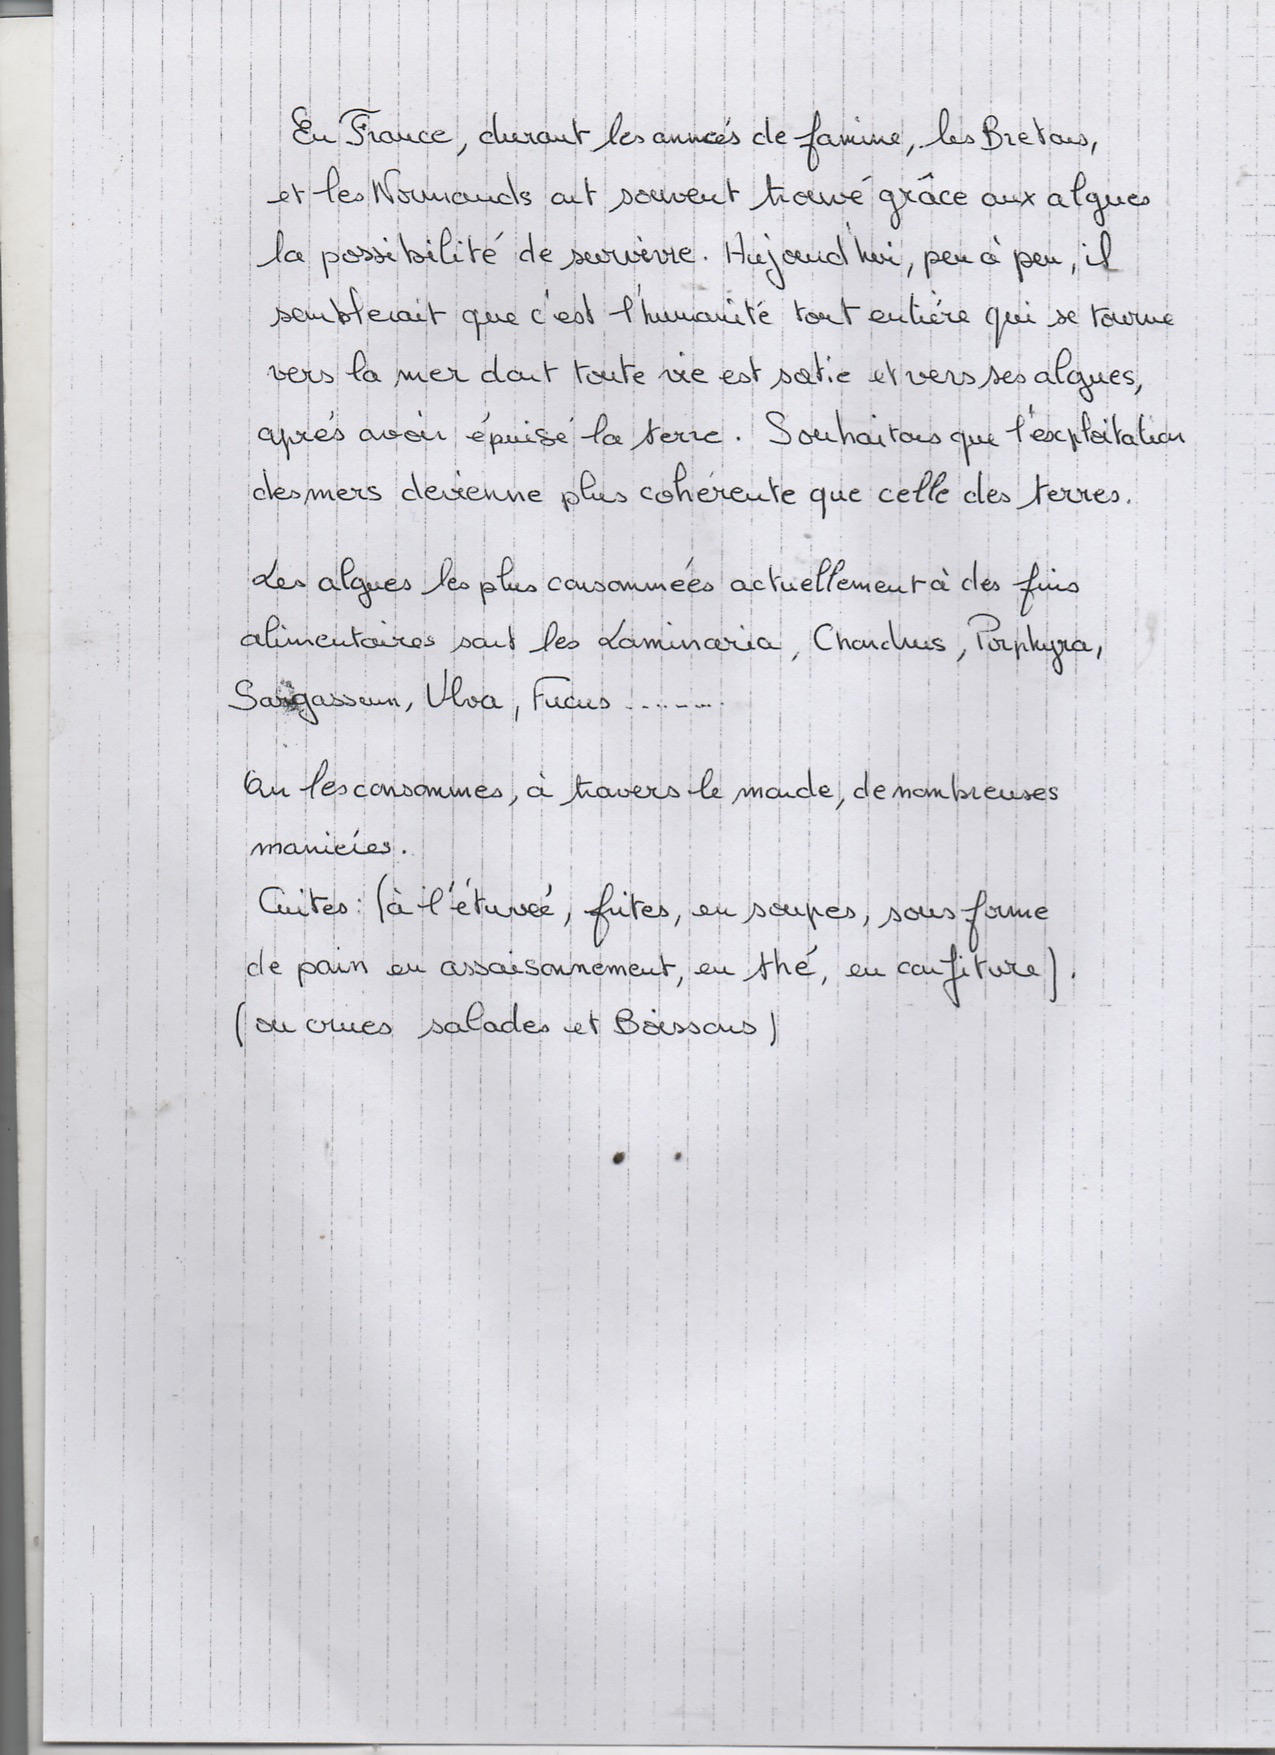 En France, durant les années de famine, les Bretons,
et les Normands ont souvent trouvé grâce aux algues
la possibilité de survivre. Aujourd'hui, peu à peu, il
semblerait que c'est l'humanité tout entière qui se tourne
vers la mer dont toute vie est sortie et vers ses algues,
après avoir épuisé la terre. Souhaitons que l'exploitation
des mers devienne plus cohérente que celle des terres.
Les algues les plus consommées actuellement à des fins
alimentaires sont les Laminaria, Chondrus, Porphyra,
Sargassum, Ulva, Fucus ........
On les consommes, à travers le monde, de nombreuses
manières.
Cuites: (à l'étuvée, frites, en soupes, sous forme
de pain en assaisonnement, en thé, en confiture).
(ou crues salades et Boissons)